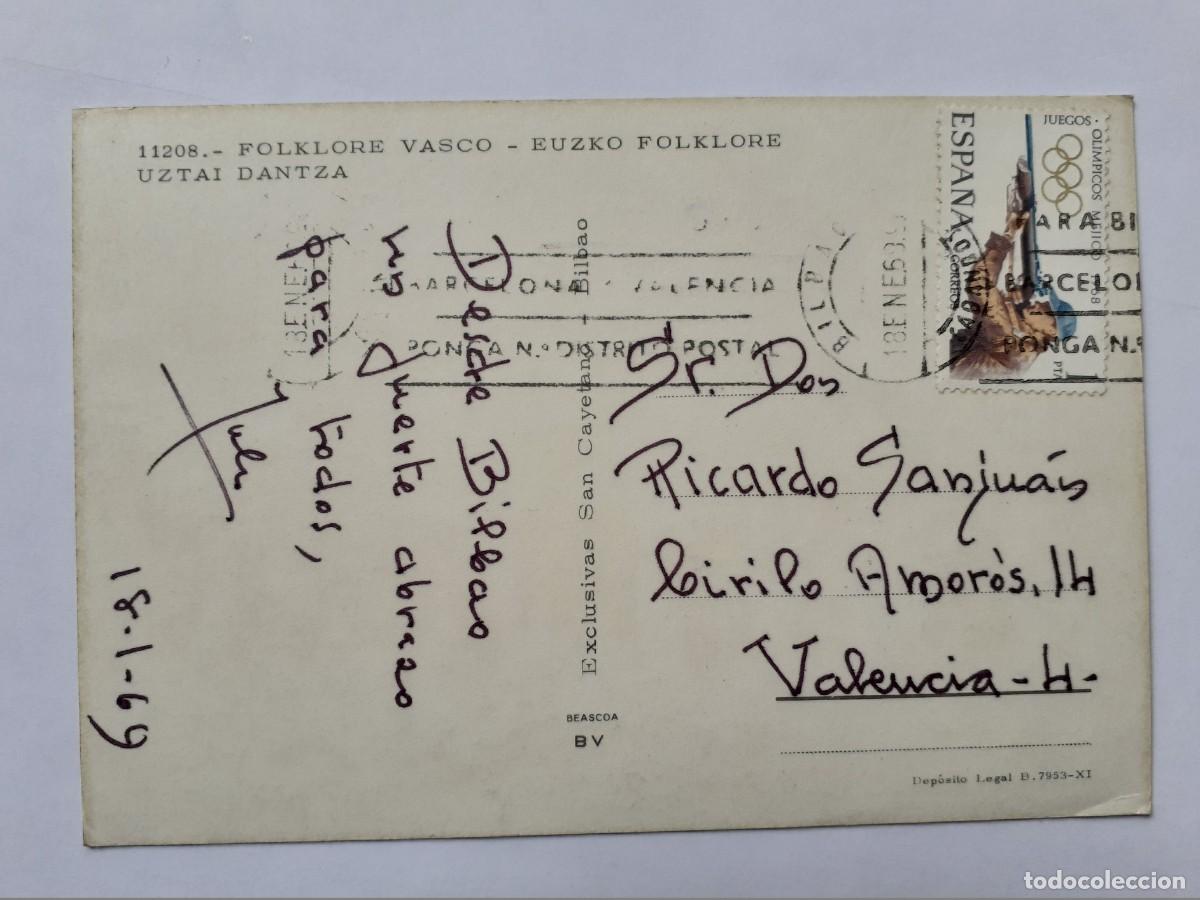 11208.- FOLKLORE VASCO - EUZKO FOLKLORE
UZTAI DANTZA
Desde Bilbao
un fuerte abrazo
para todos,
18-1-69
Exclusivas San Cayetano - Bilbao
BEASCOA
BV
ESPAÑA
CORREOS
JUEGOS · OLIMPICOS MEJICO 1968
1 PTA
BILBAO
18 ENE 69
BARCELONA Y VALENCIA
PONGA N.º DISTRITO POSTAL
18 ENE
PARA BI
BARCELO
PONGA N.º
Sr. Don
Ricardo Sanjuán
Cirilo Amorós, 14
Valencia - 4 -
Depósito Legal B. 7953-XI
todocoleccion